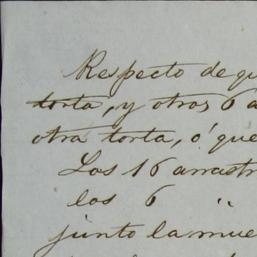 Respecto de qu
torta, y otros 6 a
otra torta, ó que
Los 16 arrastr
los 6 "
junto la mue